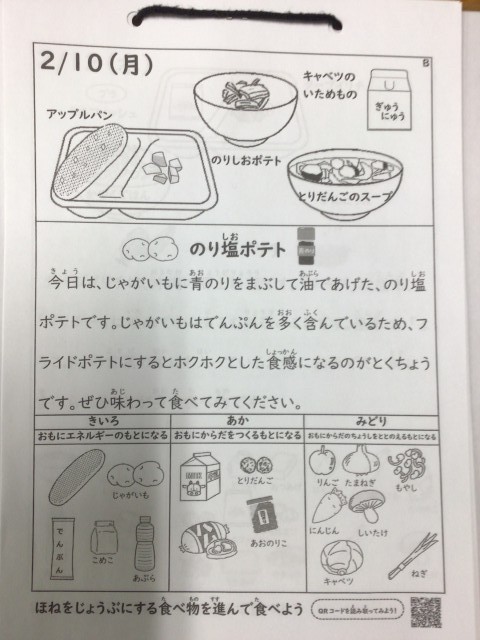 2/10(月)
B
キャベツの
いためもの
ぎゅう
にゅう
アップルパン
のりしおポテト
とりだんごのスープ
のり塩ポテト
しお
きょう あお あぶら しお
今日は、じゃがいもに青のりをまぶして油であげた、のり塩
おお ふく
ポテトです。じゃがいもはでんぷんを多く含んでいるため、フ
しょっかん
ライドポテトにするとホクホクとした食感になるのがとくちょう
あじ た
です。ぜひ味わって食べてみてください。
きいろ あか みどり
おもにエネルギーのもとになる おもにからだをつくるもとになる おもにからだのちょうしをととのえるもとになる
じゃがいも
でんぷん
こめこ
あぶら
とりだんご
あおのりこ
りんご
たまねぎ
もやし
にんじん
しいたけ
キャベツ
ねぎ
た もの すす た
ほねをじょうぶにする食べ物を進んで食べよう
QRコードを読み取ってみよう!